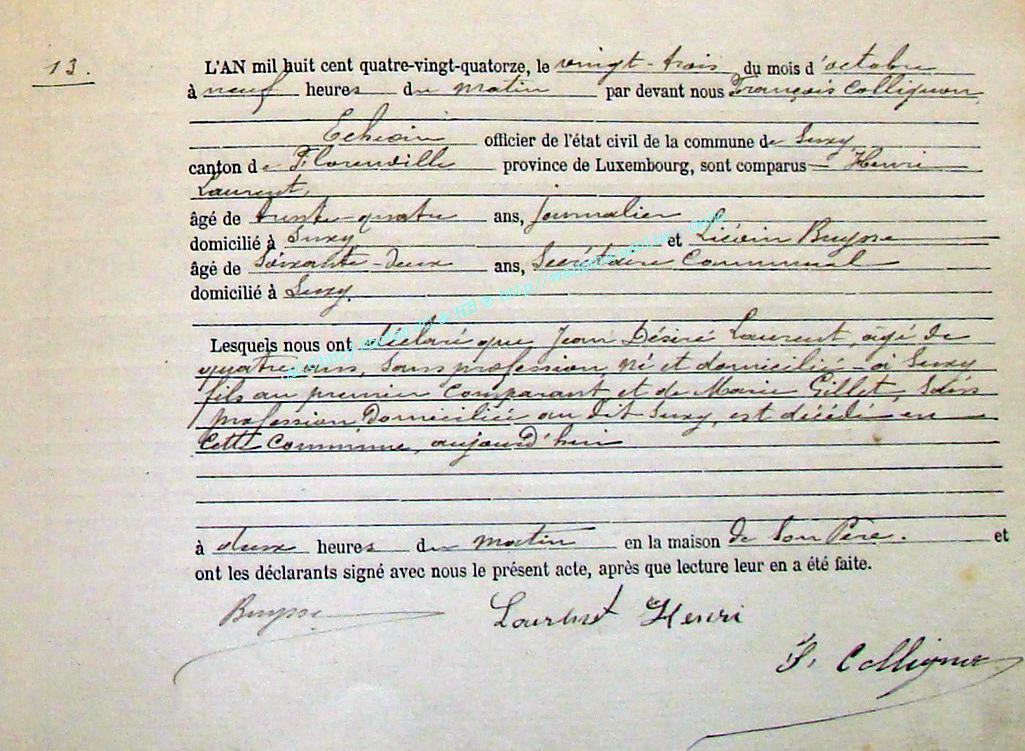 13.
L'AN mil huit cent quatre-vingt-quatorze, le vingt-trois du mois d'octobre
à neuf heures du matin par devant nous François Collignon,
Echevin officier de l'état civil de la commune de Suxy,
canton de Florenville province de Luxembourg, sont comparus Henri
Laurent,
âgé de trente-quatre ans, journalier
domicilié à Suxy et Liévin Buysse
âgé de Soixante-deux ans, Secrétaire Communal
domicilié à Suxy.
Lesquels nous ont déclaré que Jean Désiré Laurent, âgé de
quatre ans, Sans profession, né et domicilié à Suxy
fils au premier Comparant et de Marie Gillet, Sans
profession, Domiciliée au dit Suxy, est décédé en
Cette Commune, aujourd'hui
à deux heures du matin en la maison de Son Père. et
ont les déclarants signé avec nous le présent acte, après que lecture leur en a été faite.
Buysse Laurent Henri
F. Collignon